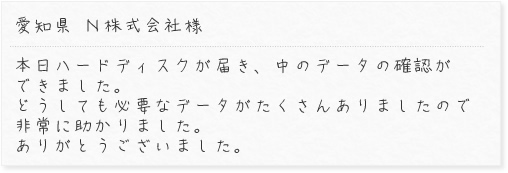 愛知県 N株式会社様
本日ハードディスクが届き、中のデータの確認が
できました。
どうしても必要なデータがたくさんありましたので
非常に助かりました。
ありがとうございました。